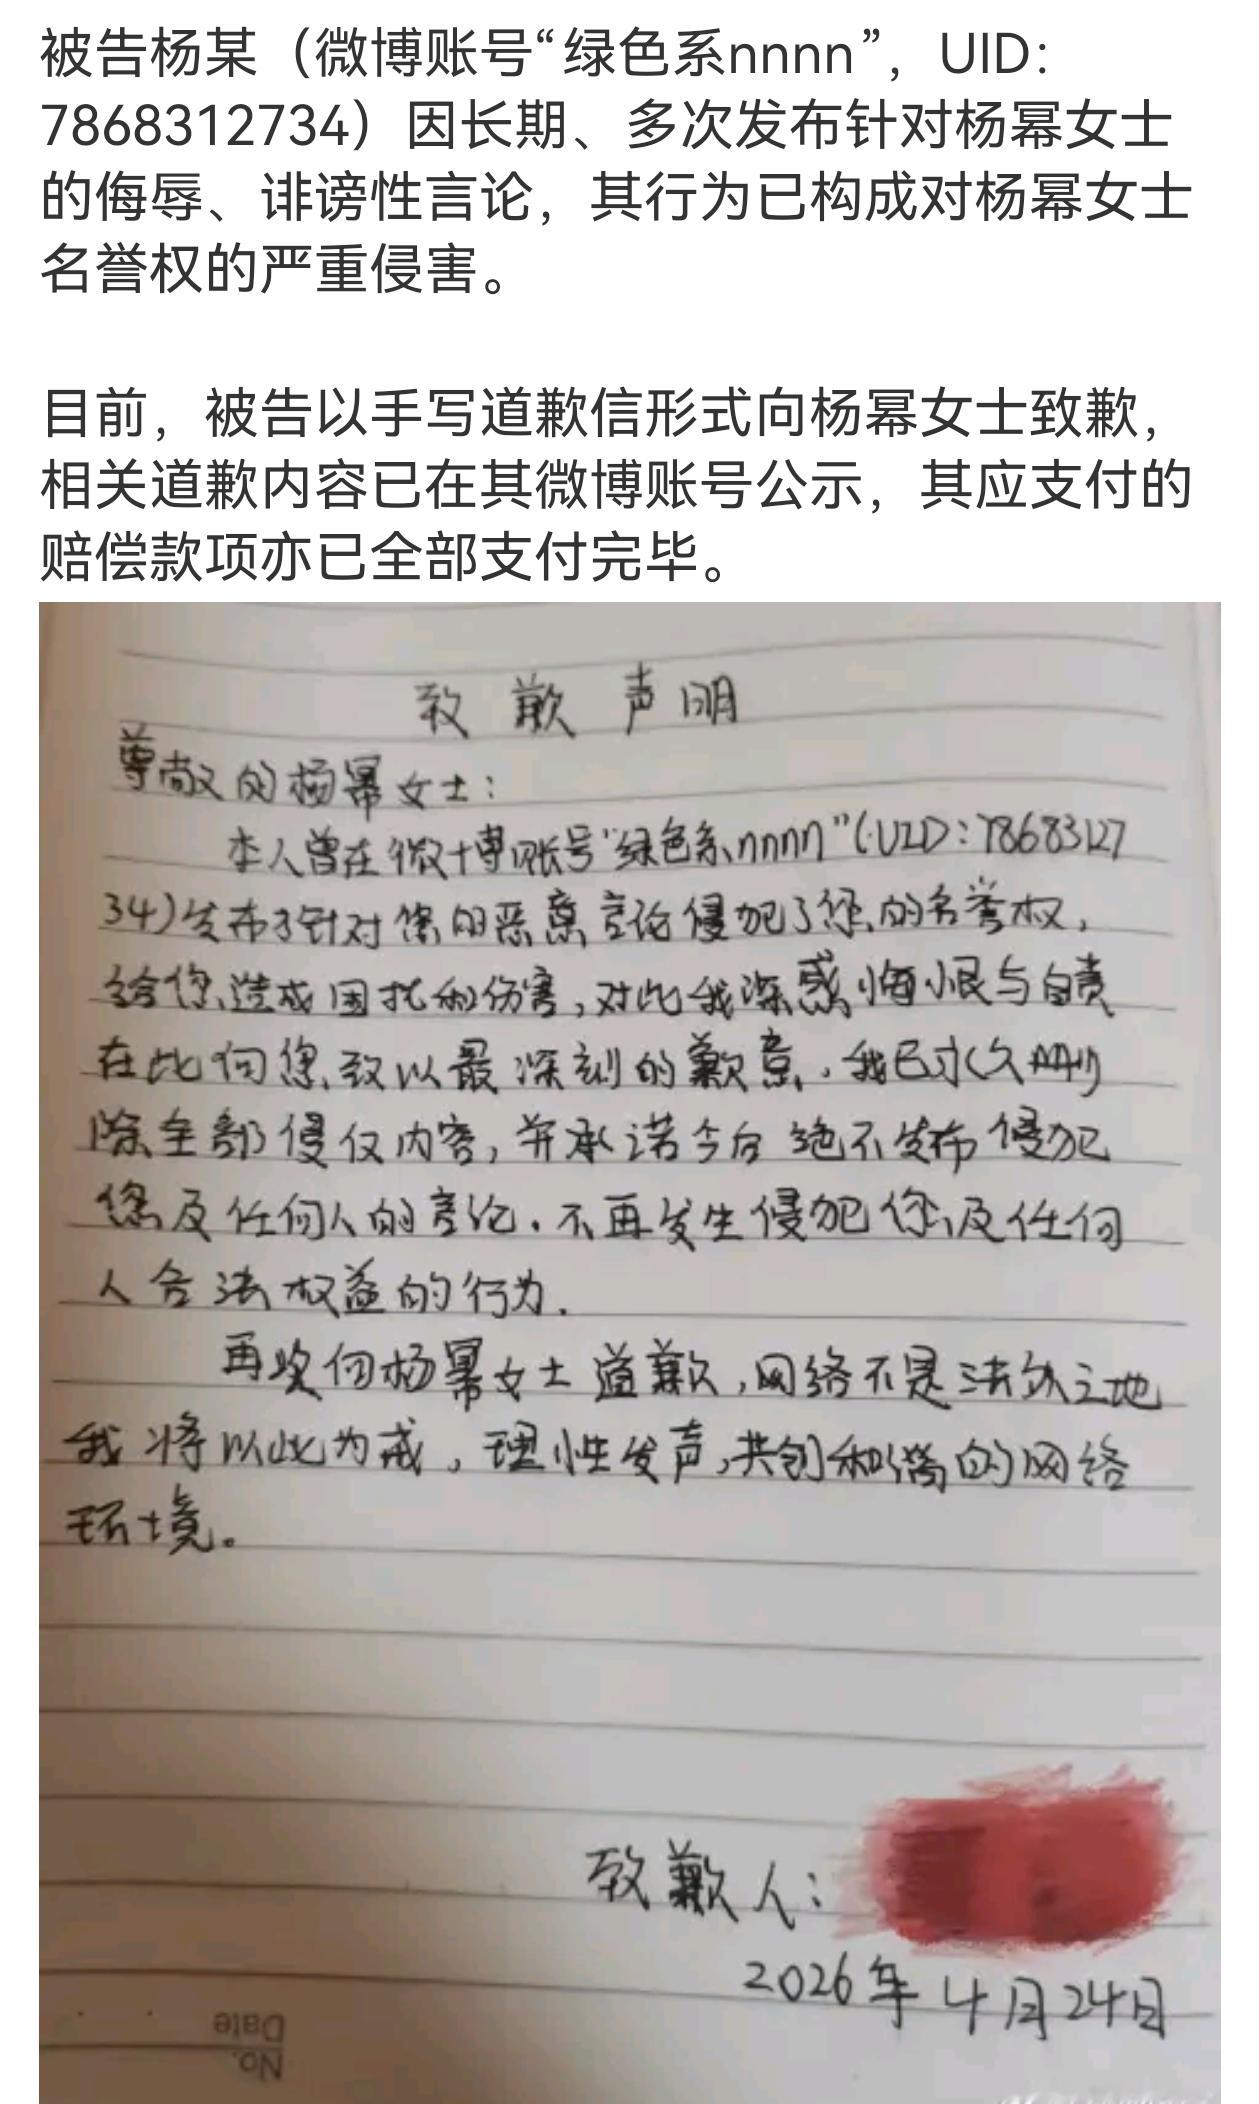 被告杨某（微博账号“绿色系nnnn”，UID：
7868312734）因长期、多次发布针对杨幂女士
的侮辱、诽谤性言论，其行为已构成对杨幂女士
名誉权的严重侵害。
目前，被告以手写道歉信形式向杨幂女士致歉，
相关道歉内容已在其微博账号公示，其应支付的
赔偿款项亦已全部支付完毕。
致歉声明
尊敬的杨幂女士：
本人曾在微博账号“绿色系nnnn”(UID：78683127
34)发布了针对您的恶意言论侵犯了您的名誉权，
给您造成困扰和伤害，对此我深感悔恨与自责
在此向您致以最深刻的歉意．我已永久删
除全部侵权内容，并承诺今后绝不发布侵犯
您及任何人的言论．不再发生侵犯您及任何
人合法权益的行为．
再次向杨幂女士道歉，网络不是法外之地
我将以此为戒，理性发声，共创和谐的网络
环境。
致歉人：
2026年4月24日
Date
No.